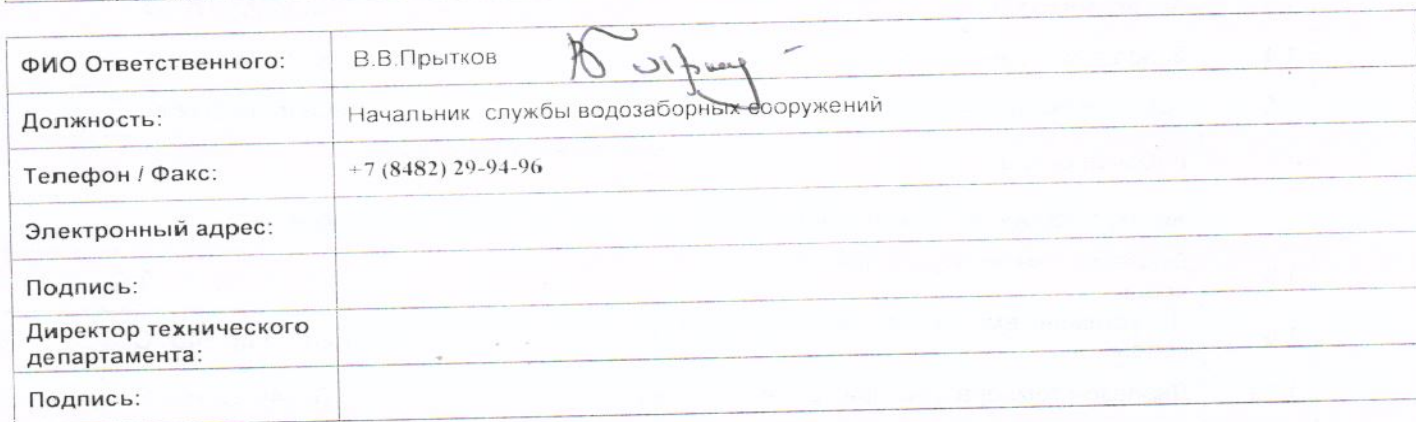 ФИО Ответственного: В.В.Прытков
Должность: Начальник службы водозаборных сооружений
Телефон / Факс: +7 (8482) 29-94-96
Электронный адрес:
Подпись:
Директор технического
департамента:
Подпись: